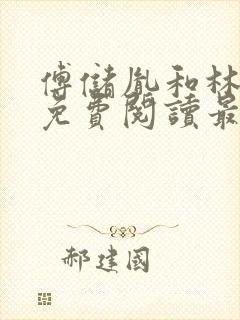 傅儲胤和林
免費閱讀最
郝建國